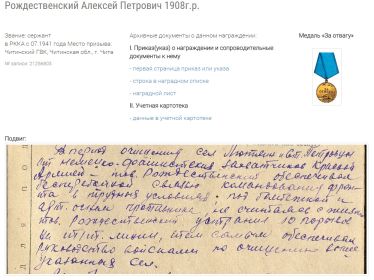 Рождественский Алексей Петрович 1908г.р.
Звание: сержант
в РККА с 07.1941 года Место призыва:
Читинский ГВК, Читинская обл., г. Чита
№ записи: 21266803
Архивные документы о данном награждении:
I. Приказ(указ) о награждении и сопроводительные
документы к нему
- первая страница приказ или указа
- строка в наградном списке
- наградной лист
II. Учетная картотека
- данные в учетной картотеке
Медаль «За отвагу»
Подвиг:
В период очищения сел Лютеж и Ст. Петровцы
от немецко-фашистских захватчиков Красной
Армией - тов. Рождественский обеспечивал
бесперебойной связью командование фрон-
та в трудных условиях - под бомбежкой и
арт. огнем противника не считаясь с жизнью
тов. Рождественский устранил 10 порывов
линии, этим самым обеспечивал
руководство войсками по очищению выше
указанных сел.